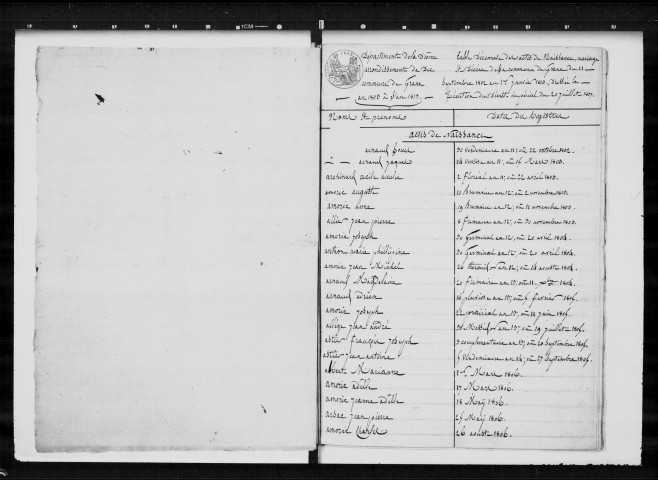 Département de la Drôme
arrondissement de Die
commune de Grane
an 1802 à l'an 1813.
Table Décennale des actes de Naissance, mariage
et Décès de la commune de Grane du 21
Septembre 1802 au 1er Janvier 1813, dressée en
Exécution du Décret impérial du 20 juillet 1807.
Noms et prenoms
Date du Registre
Actes de Naissance
arnaud 30 vendemiaire an 11; ou 22 octobre 1802.
arnaud jaques ventose an 11; ou Mars 1803.
archinard cecile 2 floreal an 11; ou 22 avril 1803.
amorie augustte 11 brumaire an 12; ou 2 novembre 1803.
amorie 19 brumaire an 12; ou 11 novembre 1803.
allier jean pierre 8 frimaire an 12; ou 30 novembre 1803.
amorie joseph 30 germinal an 12; ou 20 avril 1804.
marie philipine 30 germinal an 12; ou 20 avril 1804.
amorie jean Michel 26 thermidor an 12; ou 14 aoust 1804.
arnaud Magdelaine
arnaud adrien 16 pluviose an 13; ou 5 fevrier 1805.
amorie joseph 22 prairial an 13; ou 11 juin 1805.
jean andré Messidor an 13; ou 19 juillet 1805.
astier françois joseph 3 complementaire an 13; ou 20 Septembre 1805.
astier jean antoine 5 vendemiaire an 14; ou 27 Septembre 1805.
Marianne Mars 1806.
amorie adelle 17 Mars 1806.
amorie jeanne adelle 18 May 1806.
jean pierre 25 May 1806.
amorie 26 aoust 1806.